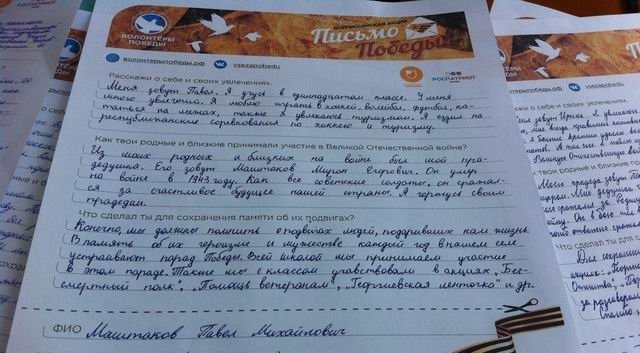 ВОЛОНТЁРЫ
ПОБЕДЫ
ВСЕРОССИЙСКАЯ АКЦИЯ
Письмо
Победы
волонтёрыпобеды.рф
vsezapobedu
РОСПАТРИОТ
Расскажи о себе и своих увлечениях.
Меня зовут Павел. Я учусь в одиннадцатом классе. У меня
много увлечений. Я люблю играть в хоккей, волейбол, футбол, ка-
таться на лыжах, также я увлекаюсь туризмом. Я ездил на
республиканские соревнования по хоккею и туризму.
Как твои родные и близкие принимали участие в Великой Отечественной войне?
Из моих родных и близких на войне был мой пра-
дедушка. Его зовут Маштаков Мирон Егорович. Он умер
на войне в 1943 году. Как все советские солдаты, он сражал-
ся за счастливое будущее нашей страны. Я горжусь своим
прадедом.
Что сделал ты для сохранения памяти об их подвигах?
Конечно, мы должны помнить о подвигах людей, подаривших нам жизнь.
В память об их героизме и мужестве каждый год в нашем селе
устраивают парад Победы. Всей школой мы принимаем участие
в этом параде. Также мы с классом участвовали в акциях „Бес-
смертный полк", „Помощь ветеранам", „Георгиевская ленточка" и др.
ФИО Маштаков Павел Михайлович
волонтёрыпобеды.рф
vsezapobedu